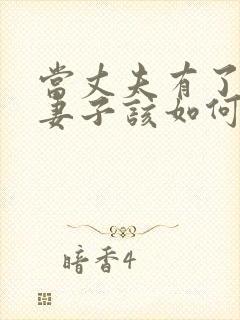 當丈夫有了
妻子該如何
暗香4